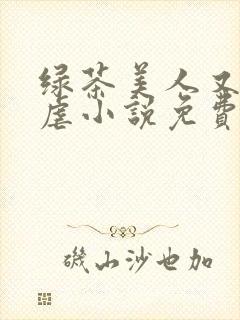 绿茶美人又
虐小說免費
磯山沙也加